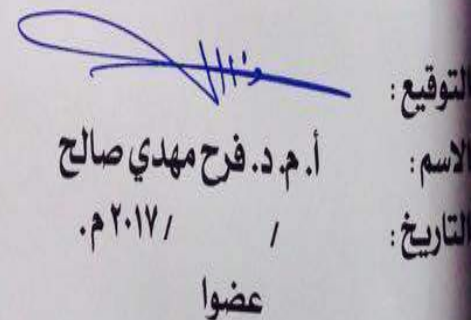 التوقيع :
الاسم : أ. م. د. فرح مهدي صالح
التاريخ : / / ٢٠١٧ م.
عضوا